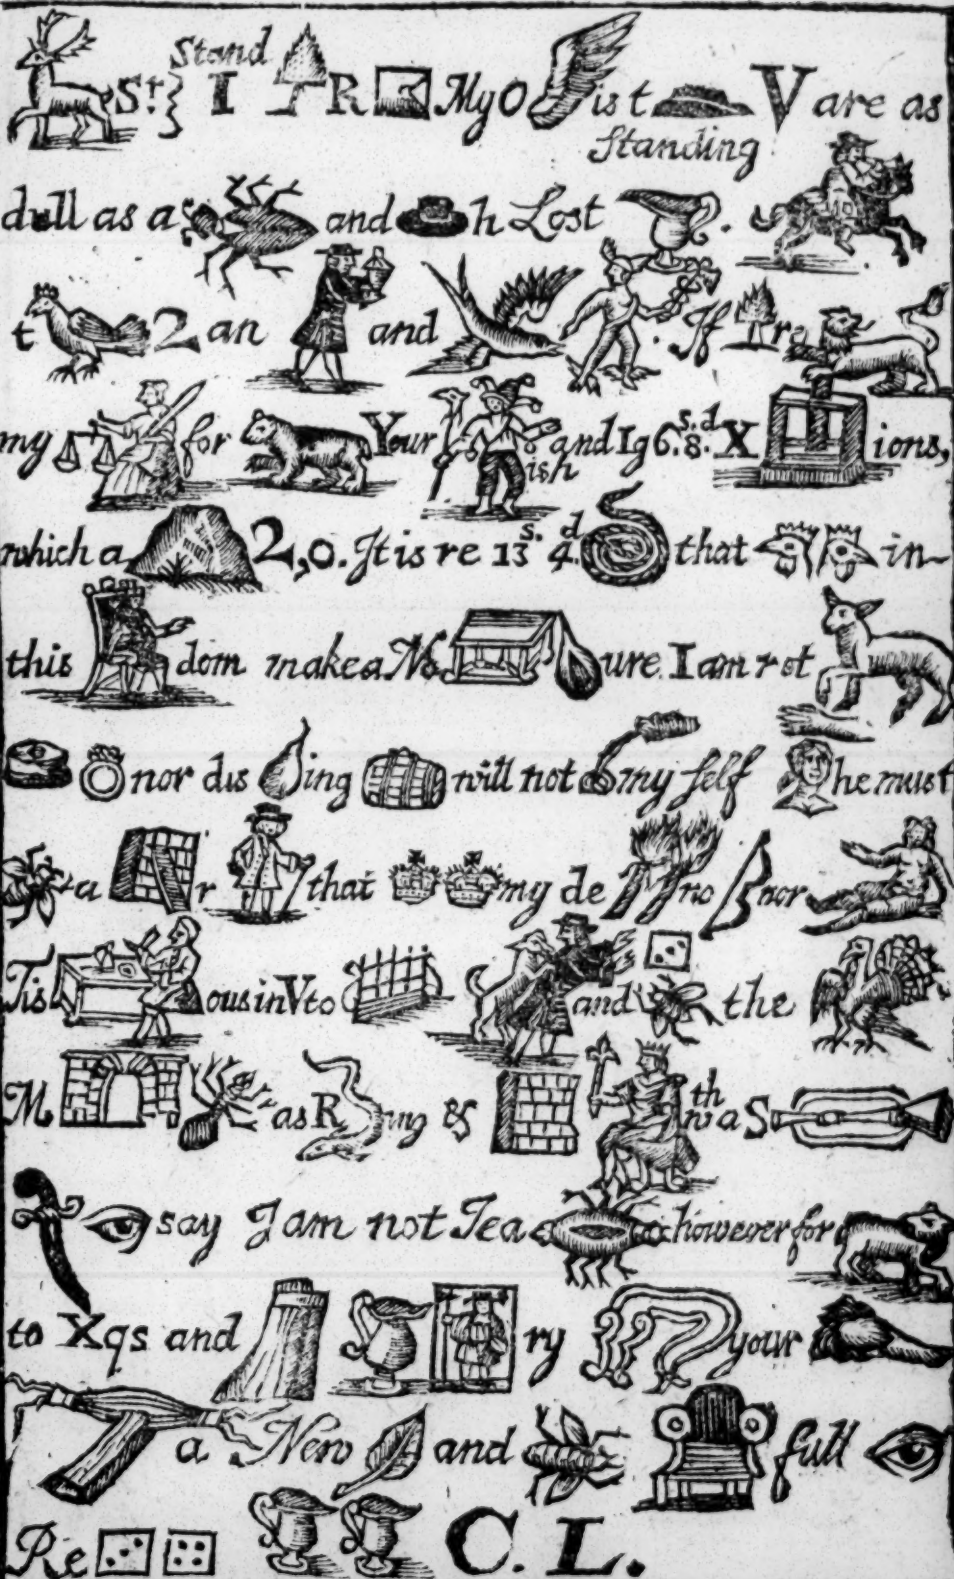 Stand
Sr I R My O is t V are as
Standing
dull as a and h Lost .
t 2 an and . If re
my for Your ish and Ig 6.s. 8.d. X ions,
which a 2,0. It is re 13s. 4d. that in-
this dom make a No ure. I am not
nor dis ing will not my self he must
a r that my de no nor
Tis ous in V to and the
M as R ing & th a S
say I am not Tea however for
to Xqs and ry your
a New and full
Re C. L.